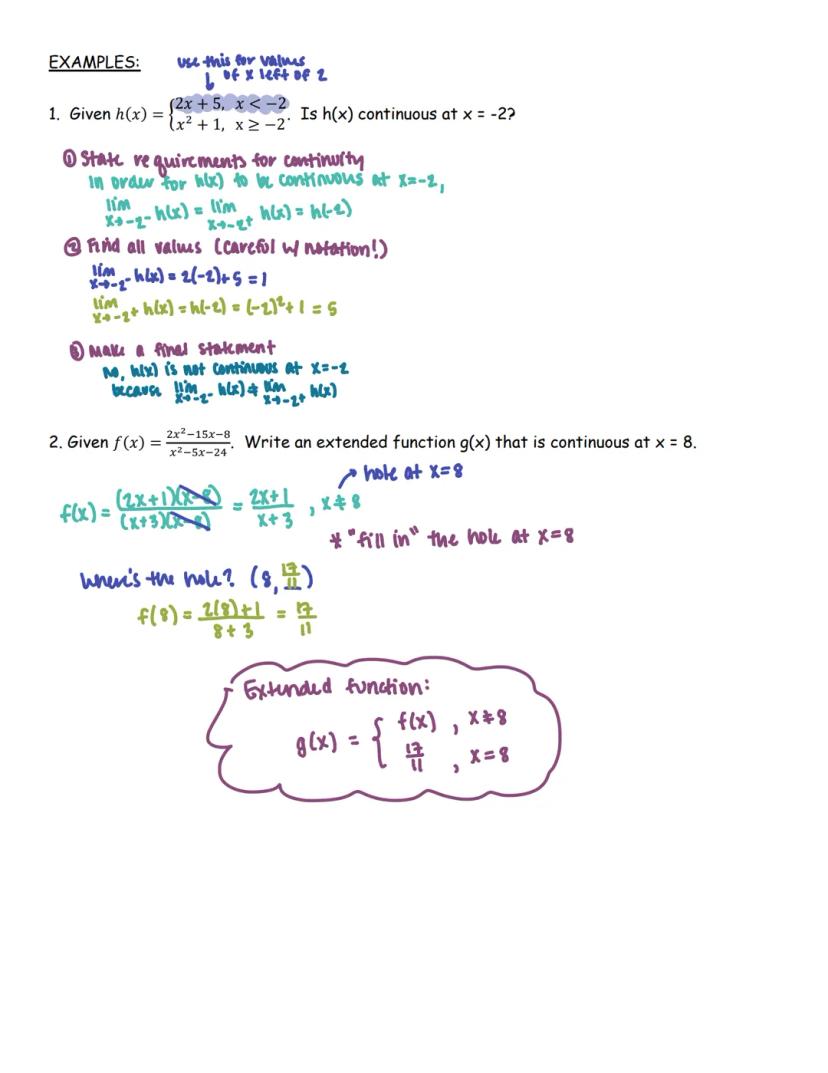 EXAMPLES:
use this for values
↓ of x left of 2
1. Given h(x) = {2x + 5, x < −2
x² + 1, x ≥ −2. Is h(x) continuous at x = -2?
① State requirements for continuity
In order for h(x) to be continuous at x=-2,
lim x→-2⁻ h(x) = lim x→-2⁺ h(x) = h(-2)
② Find all values (careful w/ notation!)
lim x→-2⁻ h(x) = 2(-2)+5 = 1
lim x→-2⁺ h(x) = h(-2) = (-2)²+1 = 5
③ Make a final statement
No, h(x) is not continuous at x=-2
because lim x→-2⁻ h(x) ≠ lim x→-2⁺ h(x)
2. Given f(x) = (2x²−15x−8)/(x²−5x−24). Write an extended function g(x) that is continuous at x = 8.
↗ hole at x=8
f(x) = (2x+1)(x-8)/(x+3)(x-8) = (2x+1)/(x+3), x≠8
* "fill in" the hole at x=8
Where's the hole? (8, 17/11)
f(8) = (2(8)+1)/(8+3) = 17/11
Extended function:
g(x) = { f(x), x≠8
17/11, x=8